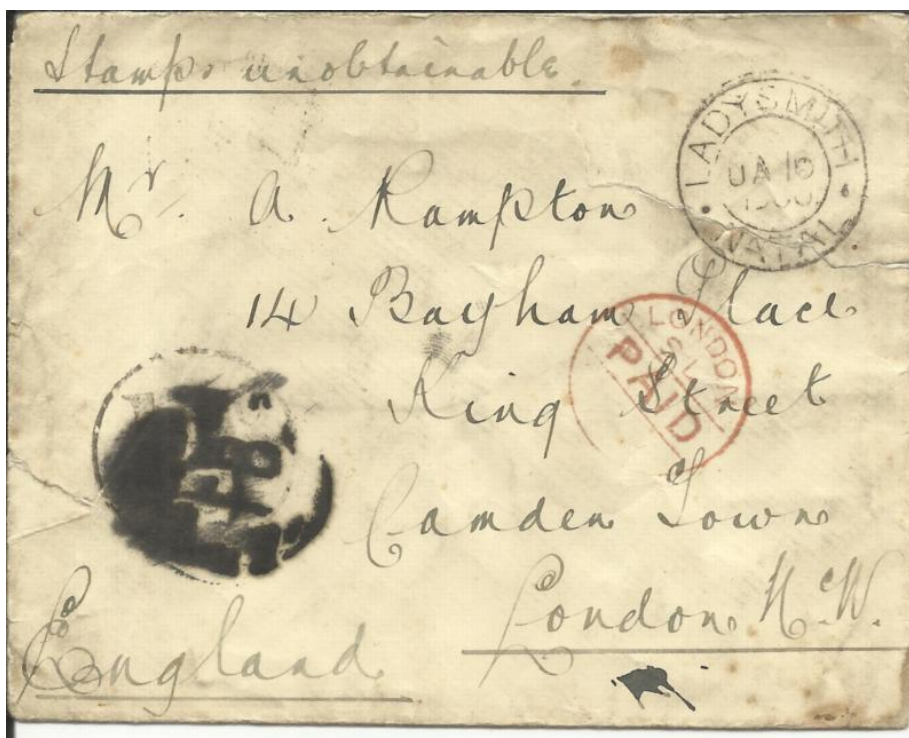 Stamps unobtainable.
LADYSMITH
JA 16
1900
NATAL
Mr. A. Rampton
14 Bayham Place
LONDON
PAID
King Street
Camden Town
London N.W.
England